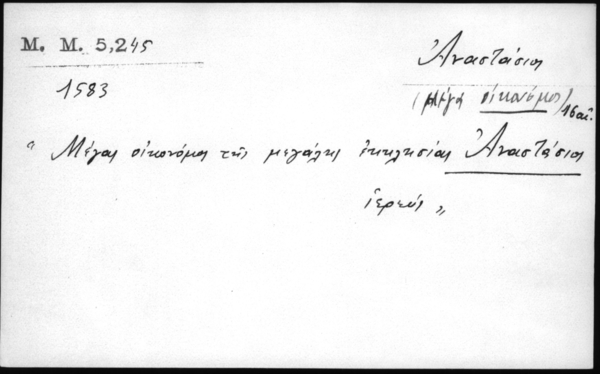 M. M. 5,245
Ἀναστάσιος
1583
(μέγας οἰκονόμος) 16 αἰ.
" Μέγας οἰκονόμος τῆς μεγάλης ἐκκλησίας Ἀναστάσιος
ἱερεύς "